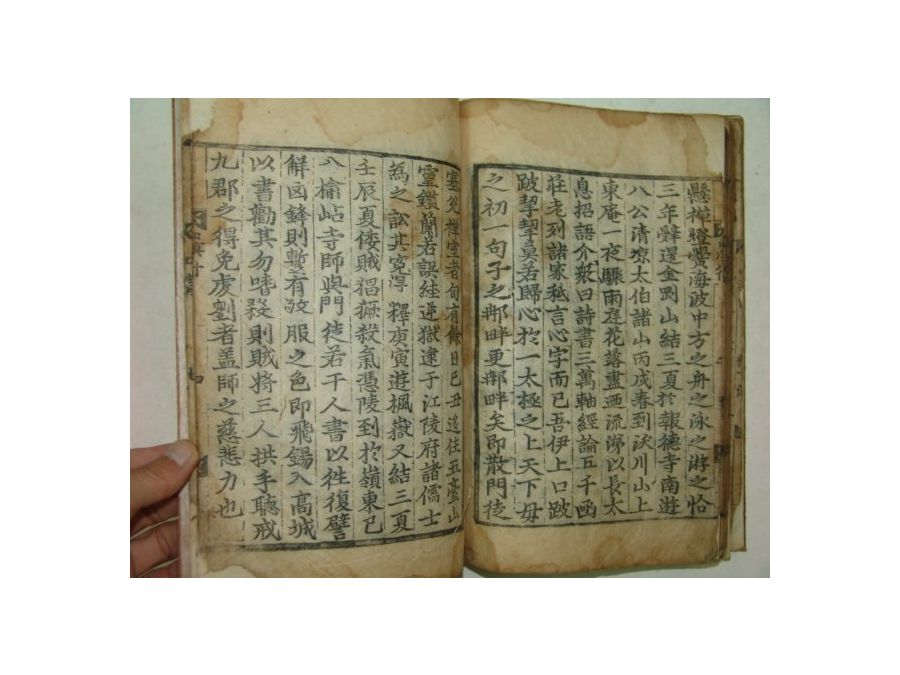 懸禪燈覺海波中方之舟之泳之游之恰
三年辭還金剛山結三夏於報德寺南遊
八公清凉太伯諸山丙戌春到沃川山上
東庵一夜驟雨庭花落盡洒流涕以長太
息招語介衆曰詩書三萬軸經論五千凾
莊老列諸家秖言心字而已吾伊上口跛
跛挈挈莫若歸心於一太極之上天下母
之初一句子之那畔更那畔矣即散門徒
塞兌禪室者旬有餘日己丑返住五臺山
靈鑑蘭若誤絓逆獄逮于江陵府諸儒士
爲之訟其冤得釋庚寅遊楓嶽又結三夏
壬辰夏倭賊猖獗殺氣憑陵到於嶺東已
入榆岾寺師與門徒若干人書以徃復譬
解囟鋒則暫有欵服之色即飛錫入高城
以書勸其勿嗜殺則賊將三人拱手聽戒
九郡之得免虔劉者盖師之慈悲力也